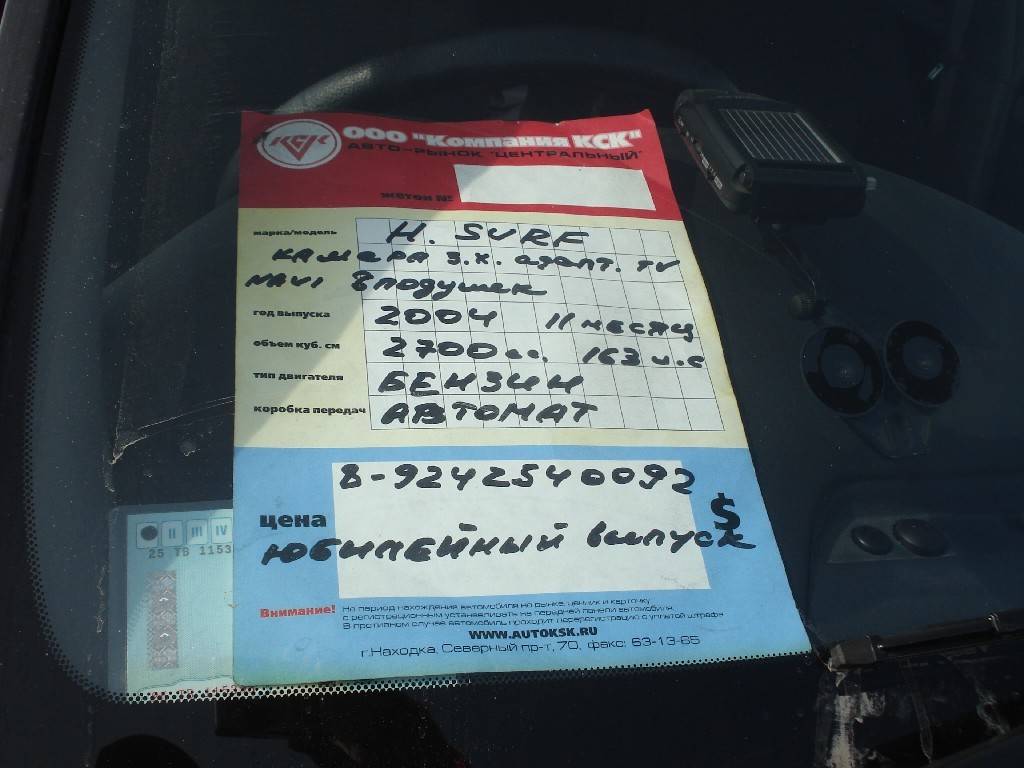 КСК
ООО "Компания КСК"
АВТО-РЫНОК "ЦЕНТРАЛЬНЫЙ"
жетон №
марка/модель H. SURF
КАМЕРА з.х. адапт. TV
NAVI 8 подушек
год выпуска 2004 11 месяц
объем куб. см 2700 сс. 163 л.с
тип двигателя БЕНЗИН
коробка передач АВТОМАТ
8-9242540092
цена $
ЮБИЛЕЙНЫЙ выпуск
Внимание! На период нахождения автомобиля на рынке, ценник и карточку
с регистрационным устанавливать на передней панели автомобиля.
В противном случае автомобиль проходит перерегистрацию с уплатой штрафа
WWW.AUTOKSK.RU
г.Находка, Северный пр-т, 70, факс: 63-13-65
II III IV
25 ТВ 1153